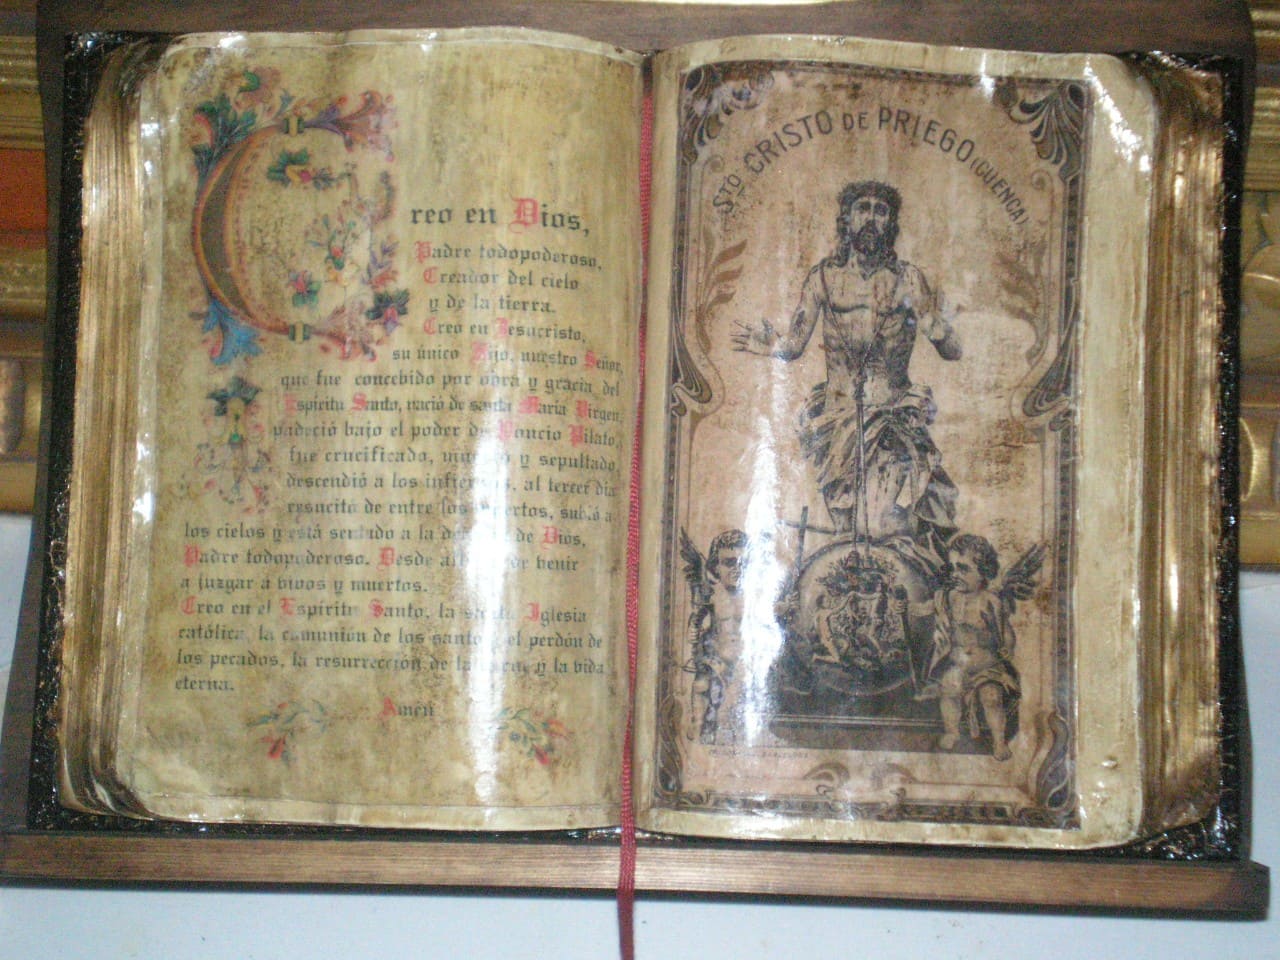 Creo en Dios,
Padre todopoderoso,
Creador del cielo
y de la tierra.
Creo en Jesucristo,
su único Hijo, nuestro Señor,
que fue concebido por obra y gracia del
Espíritu Santo, nació de santa María Virgen,
padeció bajo el poder de Poncio Pilato,
fue crucificado, muerto y sepultado,
descendió a los infiernos, al tercer día
resucitó de entre los muertos, subió a
los cielos y está sentado a la derecha de Dios,
Padre todopoderoso. Desde allí ha de venir
a juzgar a vivos y muertos.
Creo en el Espíritu Santo, la santa Iglesia
católica, la comunión de los santos, el perdón de
los pecados, la resurrección de la carne y la vida
eterna.
Amén
STO. CRISTO DE PRIEGO (CUENCA)